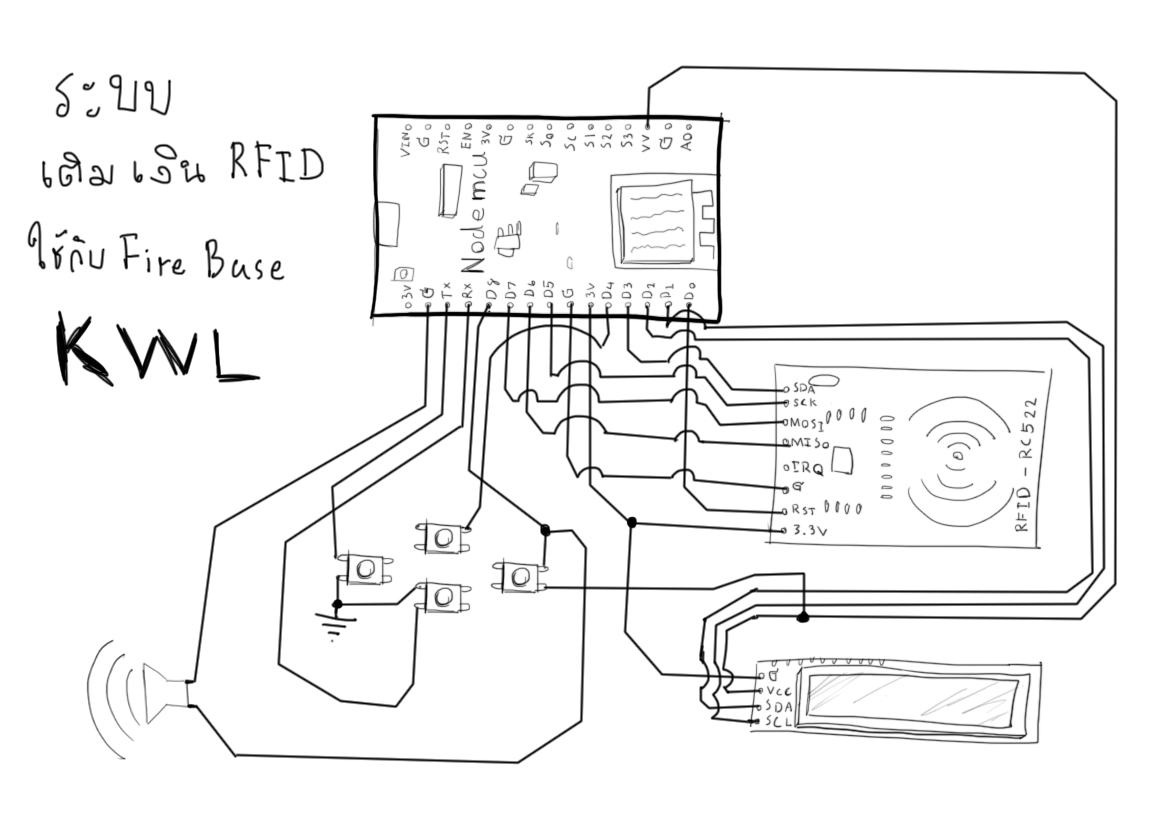 ระบบ
เติมเงิน RFID
ใช้กับ Fire Base
KWL
VIN
G
RST
EN
3V
G
SK
S0
SC
S1
S2
S3
VV
G
A0
Nodemcu
3V
G
Tx
Rx
D8
D7
D6
D5
G
3V
D4
D3
D2
D1
D0
SDA
SCK
MOSI
MISO
IRQ
G
RST
3.3V
RFID-RC522
G
VCC
SDA
SCL